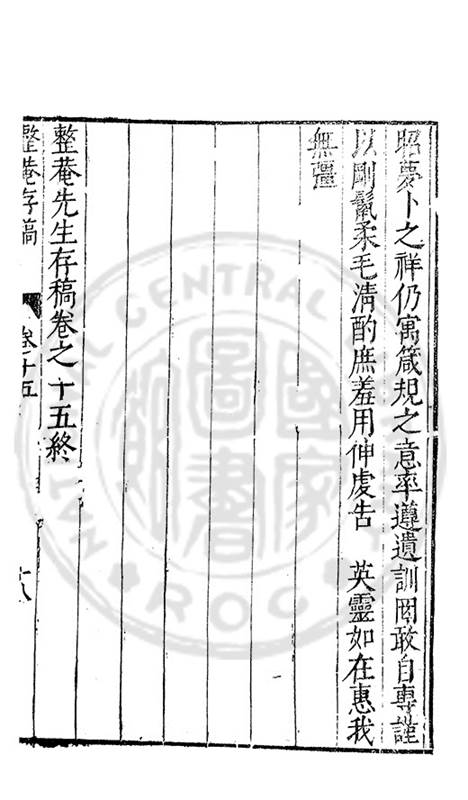 昭夢卜之祥仍寓箴規之意率遵遺訓罔敢自專謹
以剛鬣柔毛清酌庶羞用伸虔告　英靈如在惠我
無疆
整菴先生存稿卷之十五終
整菴存稿　卷十五　十八